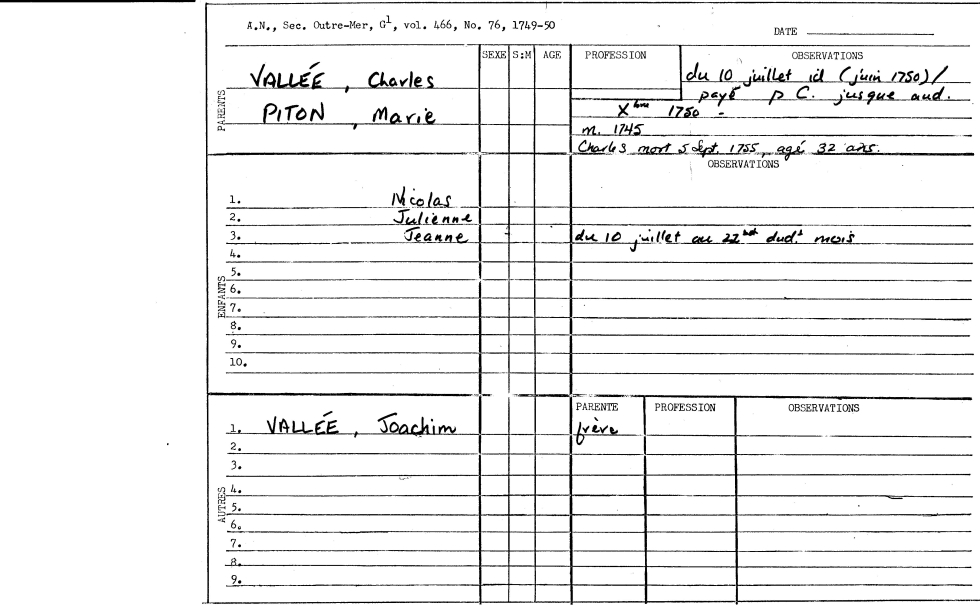 A.N., Sec. Outre-Mer, G1, vol. 466, No. 76, 1749-50
DATE
SEXE S:M AGE PROFESSION OBSERVATIONS
PARENTS
VALLÉE, Charles
du 10 juillet id (juin 1750)/
payé p C. jusque aud.
PITON, Marie
Xbre 1750 -
m. 1745
Charles mort 5 Sept. 1755, agé 32 ans.
OBSERVATIONS
ENFANTS
1. Nicolas
2. Julienne
3. Jeanne du 10 juillet au 22 dud.t mois
4.
5.
6.
7.
8.
9.
10.
PARENTE PROFESSION OBSERVATIONS
AUTRES
1. VALLÉE, Joachim frère
2.
3.
4.
5.
6.
7.
8.
9.